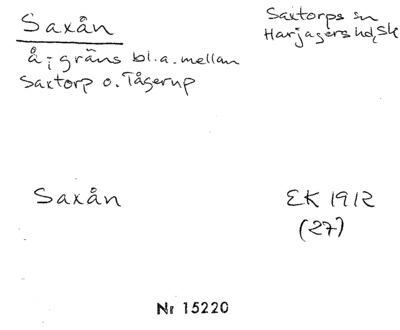 Saxån
Saxtorps sn
Harjagers hd, Sk
å; gräns bl.a. mellan
Saxtorp o. Tågerup
Saxån
EK 1912
(27)
Nr 15220